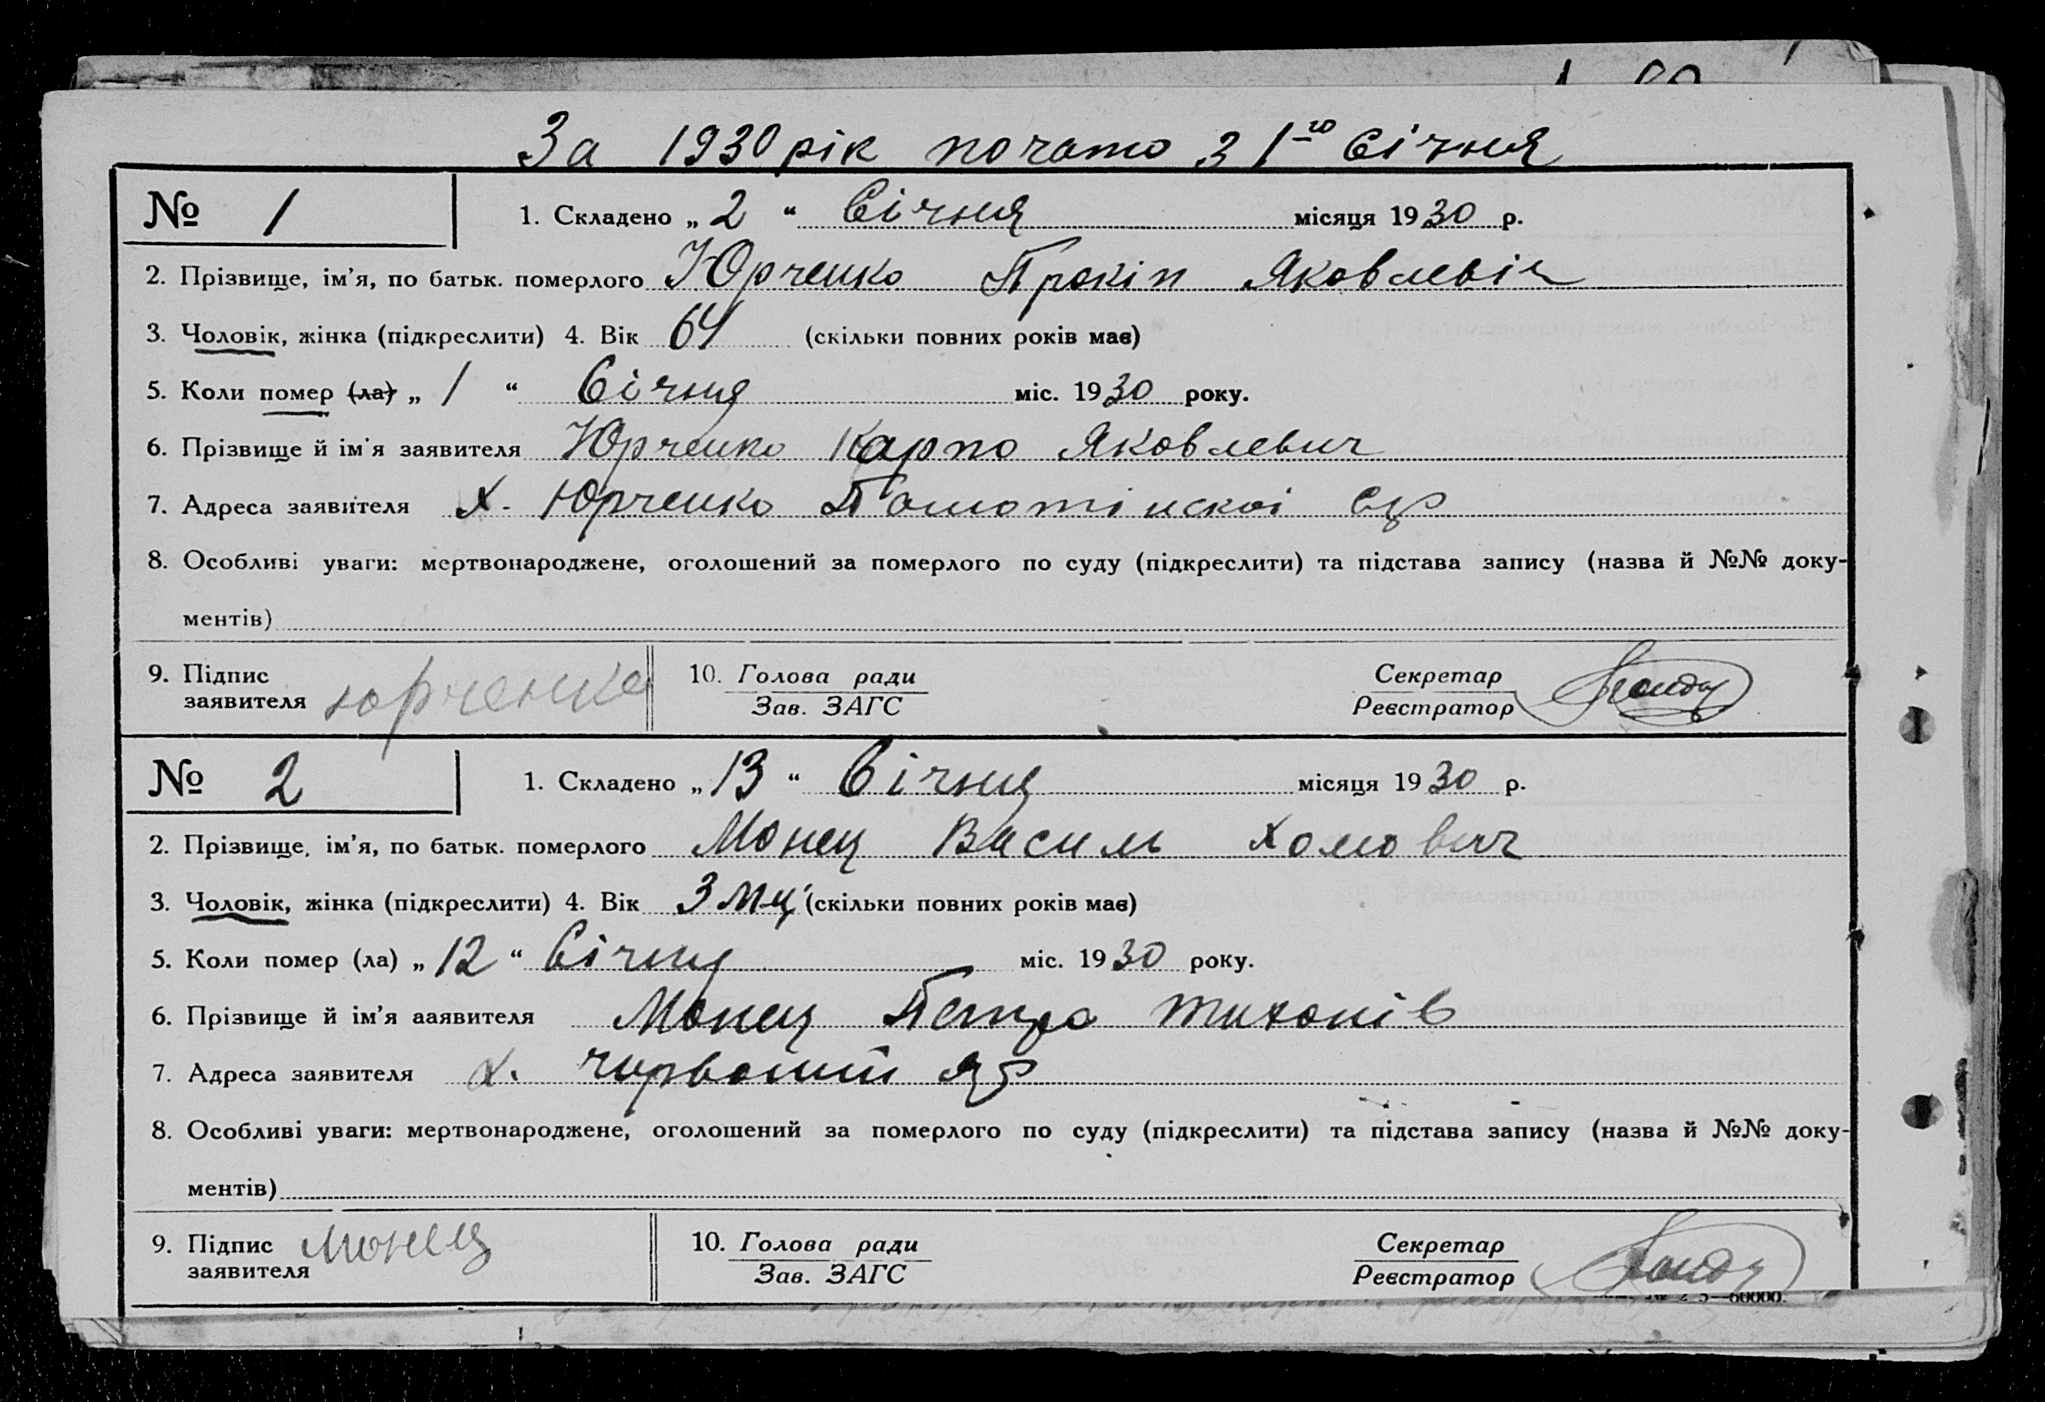 За 1930 рік почато з 1го Січня
№ 1
1. Складено „ 2 “ Січня місяця 1930 р.
2. Прізвище, ім'я, по батьк. померлого Юрченко Прокіп Яковлевіч
3. Чоловік, жінка (підкреслити) 4. Вік 64 (скільки повних років має)
5. Коли помер (ла) „ 1 “ Січня міс. 1930 року.
6. Прізвище й ім'я заявителя Юрченко Карпо Яковлевич
7. Адреса заявителя х. Юрченко
8. Особливі уваги: мертвонароджене, оголошений за померлого по суду (підкреслити) та підстава запису (назва й №№ доку-
ментів)
9. Підпис заявителя Юрченко
10. Голова ради
Зав. ЗАГС
Секретар
Реєстратор
№ 2
1. Складено „ 13 “ Січня місяця 1930 р.
2. Прізвище, ім'я, по батьк. померлого Монец Василь Хомович
3. Чоловік, жінка (підкреслити) 4. Вік 3 м-ц (скільки повних років має)
5. Коли помер (ла) „ 12 “ Січня міс. 1930 року.
6. Прізвище й ім'я ааявителя Монец Петро Тихонів
7. Адреса заявителя х. Яр
8. Особливі уваги: мертвонароджене, оголошений за померлого по суду (підкреслити) та підстава запису (назва й №№ доку-
ментів)
9. Підпис заявителя Монец
10. Голова ради
Зав. ЗАГС
Секретар
Реєстратор